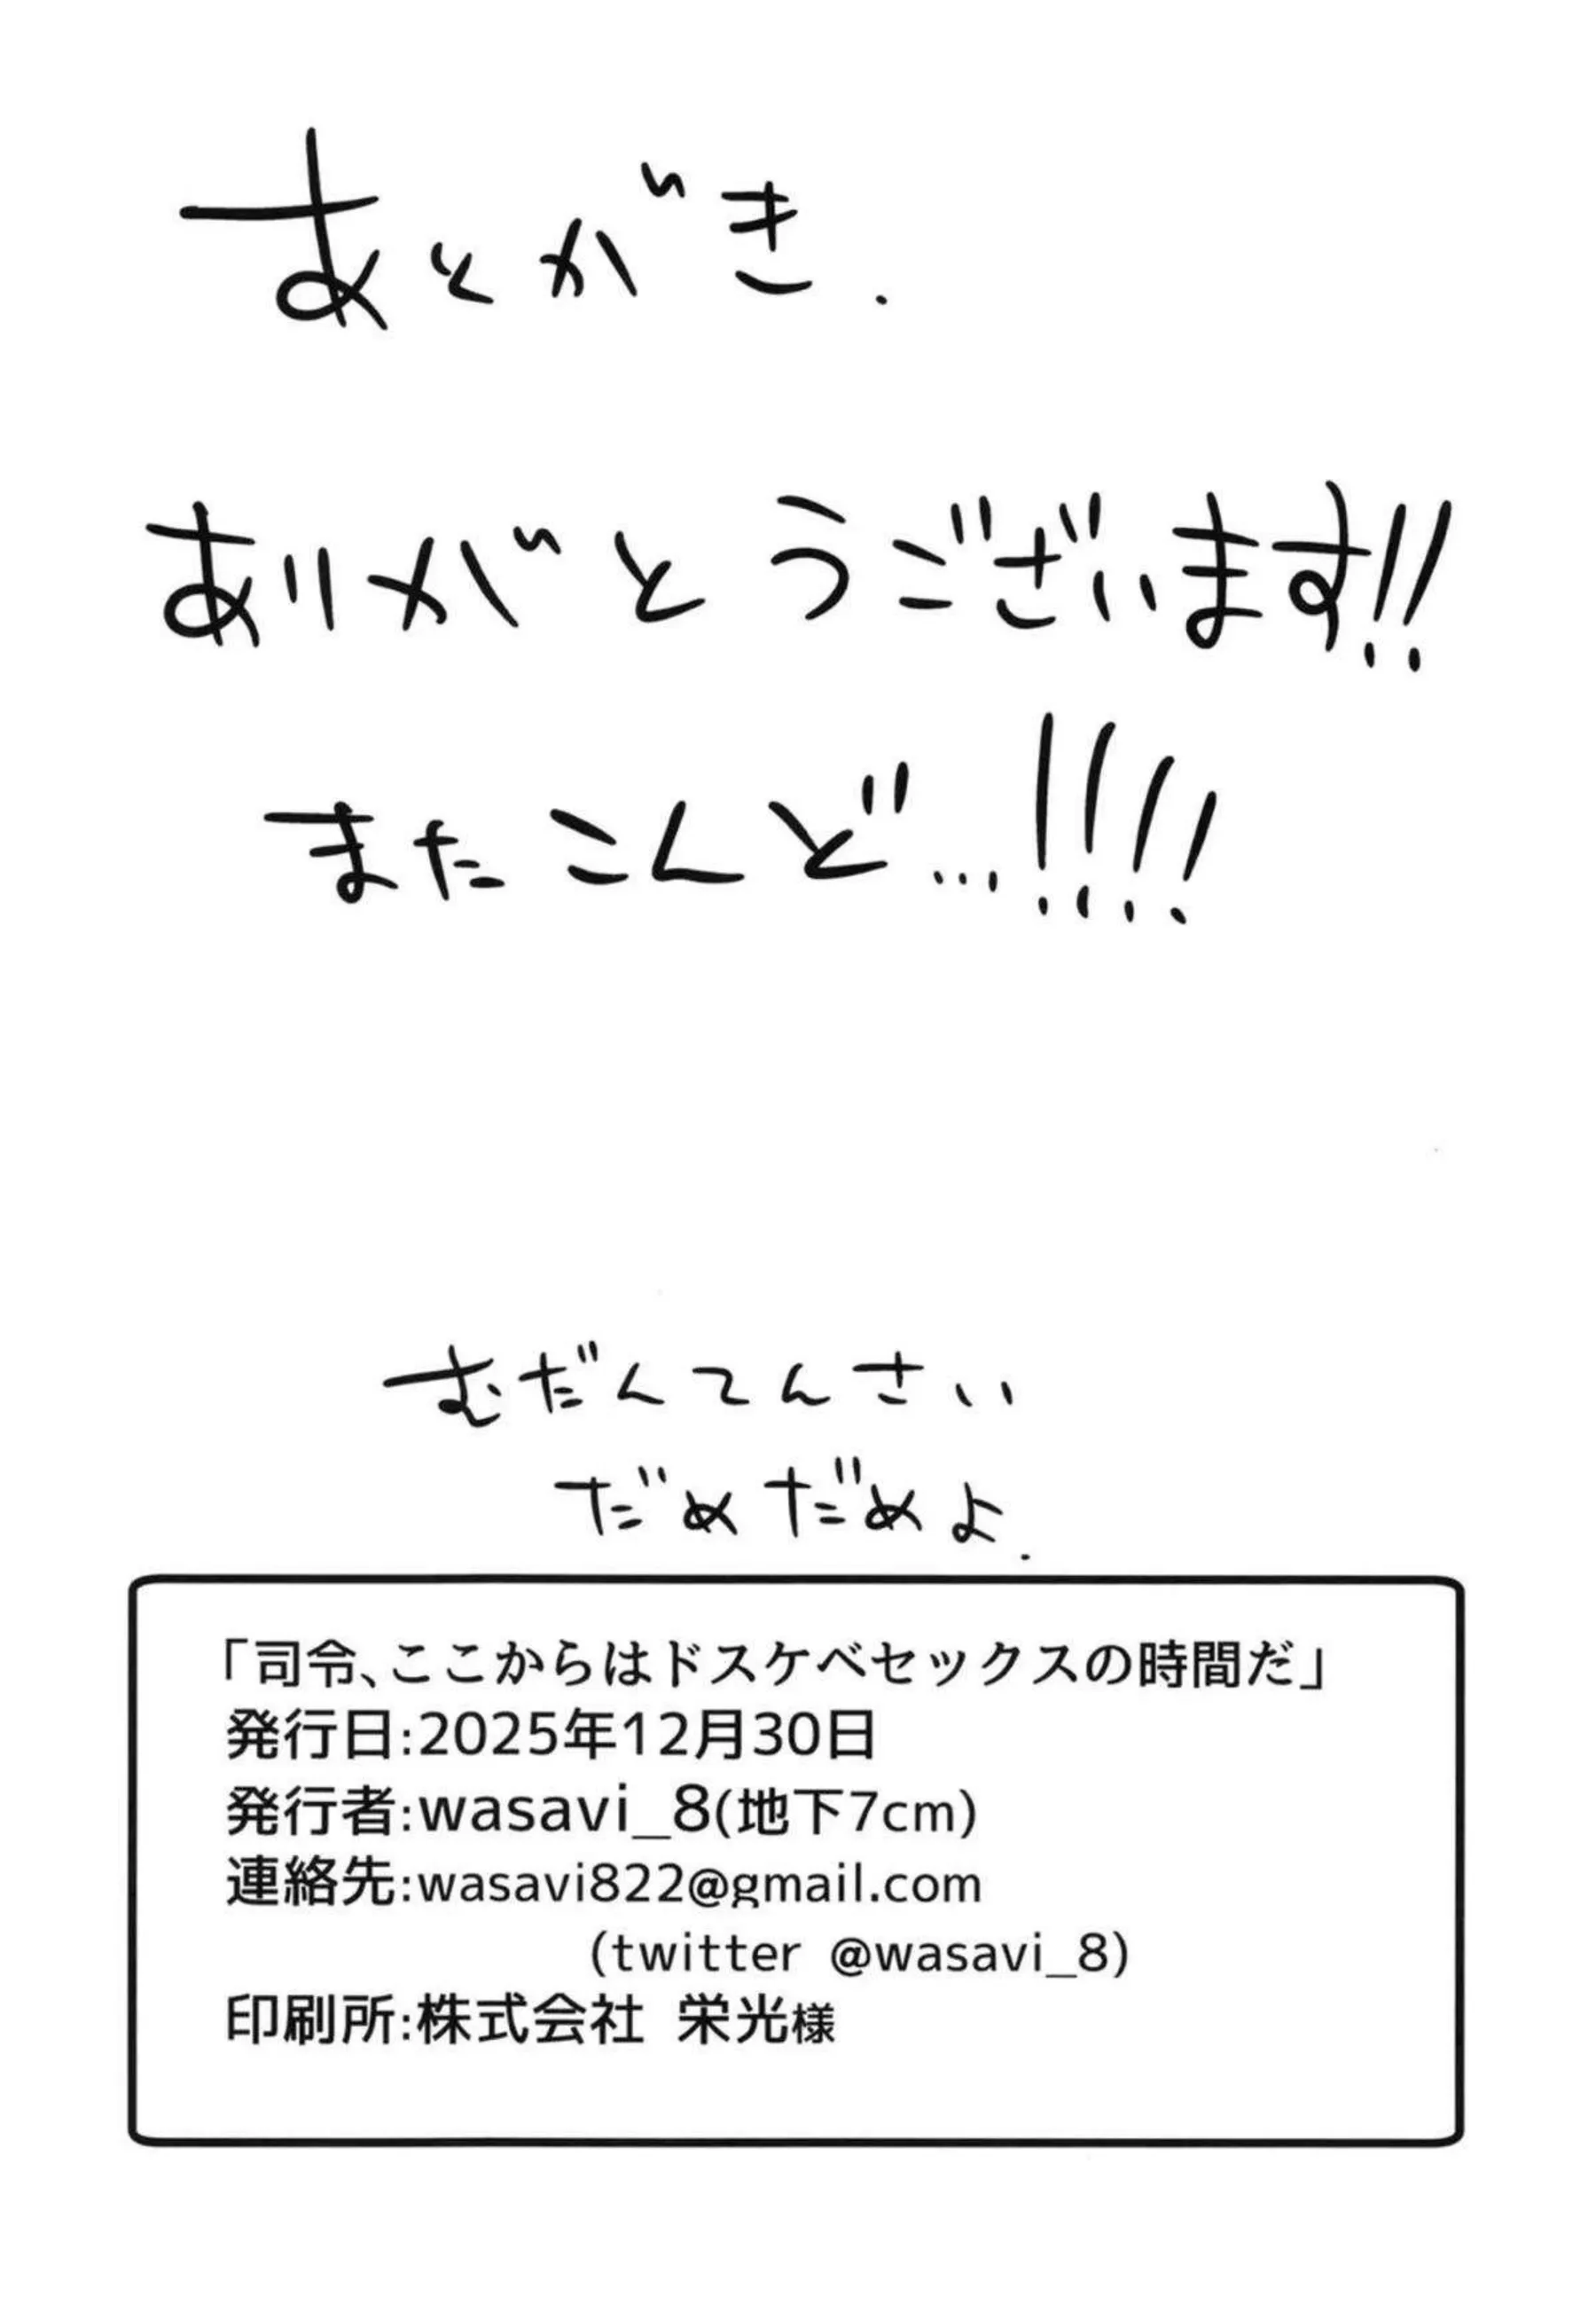 あとがき.
ありがとうございます!!
またこんど…!!!!
むだんてんさい
だめだめよ.
「司令、ここからはドスケベセックスの時間だ」
発行日:2025年12月30日
発行者:wasavi_8(地下7cm)
連絡先:wasavi822@gmail.com
(twitter @wasavi_8)
印刷所:株式会社 栄光様